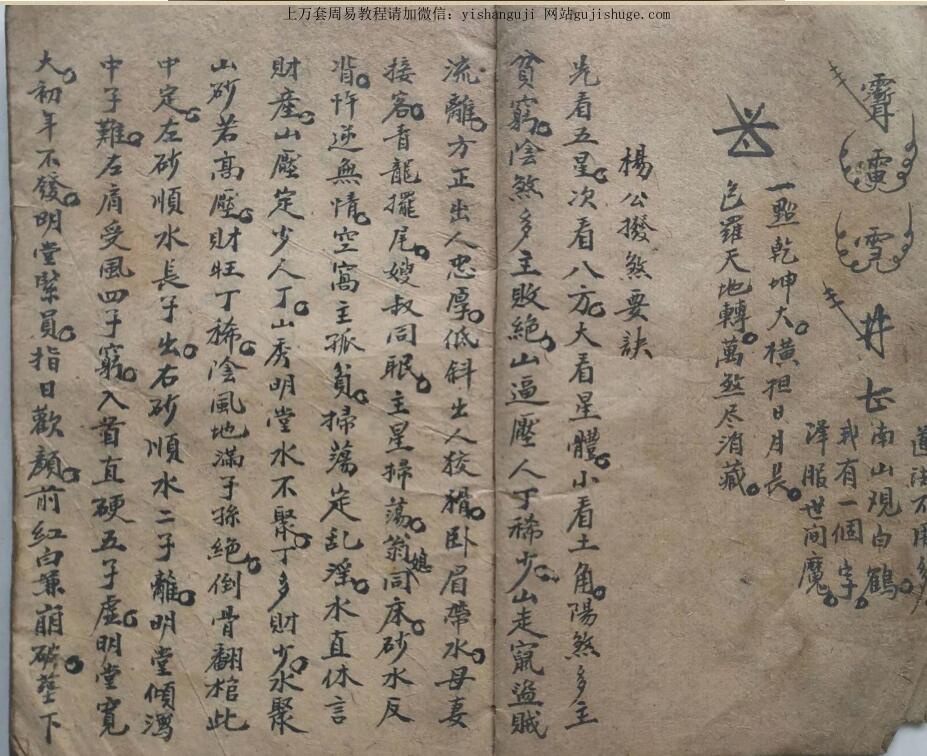 上万套周易教程请加微信：yishanguji 网站gujishuge.com
道法不用多
南山观白鶴
我有一個字
澤服世间魔
一點乾坤大橫担日月長
包羅天地轉萬煞尽消藏
楊公撥煞要訣
先看五星次看八方大看星體小看土角陽煞多主
貧窮陰煞多主敗絕山逼壓人丁稀少山走竄盜賊
流離方正出人忠厚低斜出人狡猾卧眉帶水母妻
接客青龍擺尾嫂叔同眠主星掃蕩翁媳同床砂水反
背忤逆無情空窩主孤貧掃蕩定乱淫水直休言
財產山壓定少人丁山秀明堂水不聚丁多財少水聚
山砂若高壓財旺丁稀陰風地滿子孫絕倒骨翻棺此
中定左砂順水長子出右砂順水二子離明堂傾瀉
中子難左肩受風四子窮入首直硬五子虛明堂寬
大初年不發明堂緊員指日歡顏前紅白兼崩破塟下